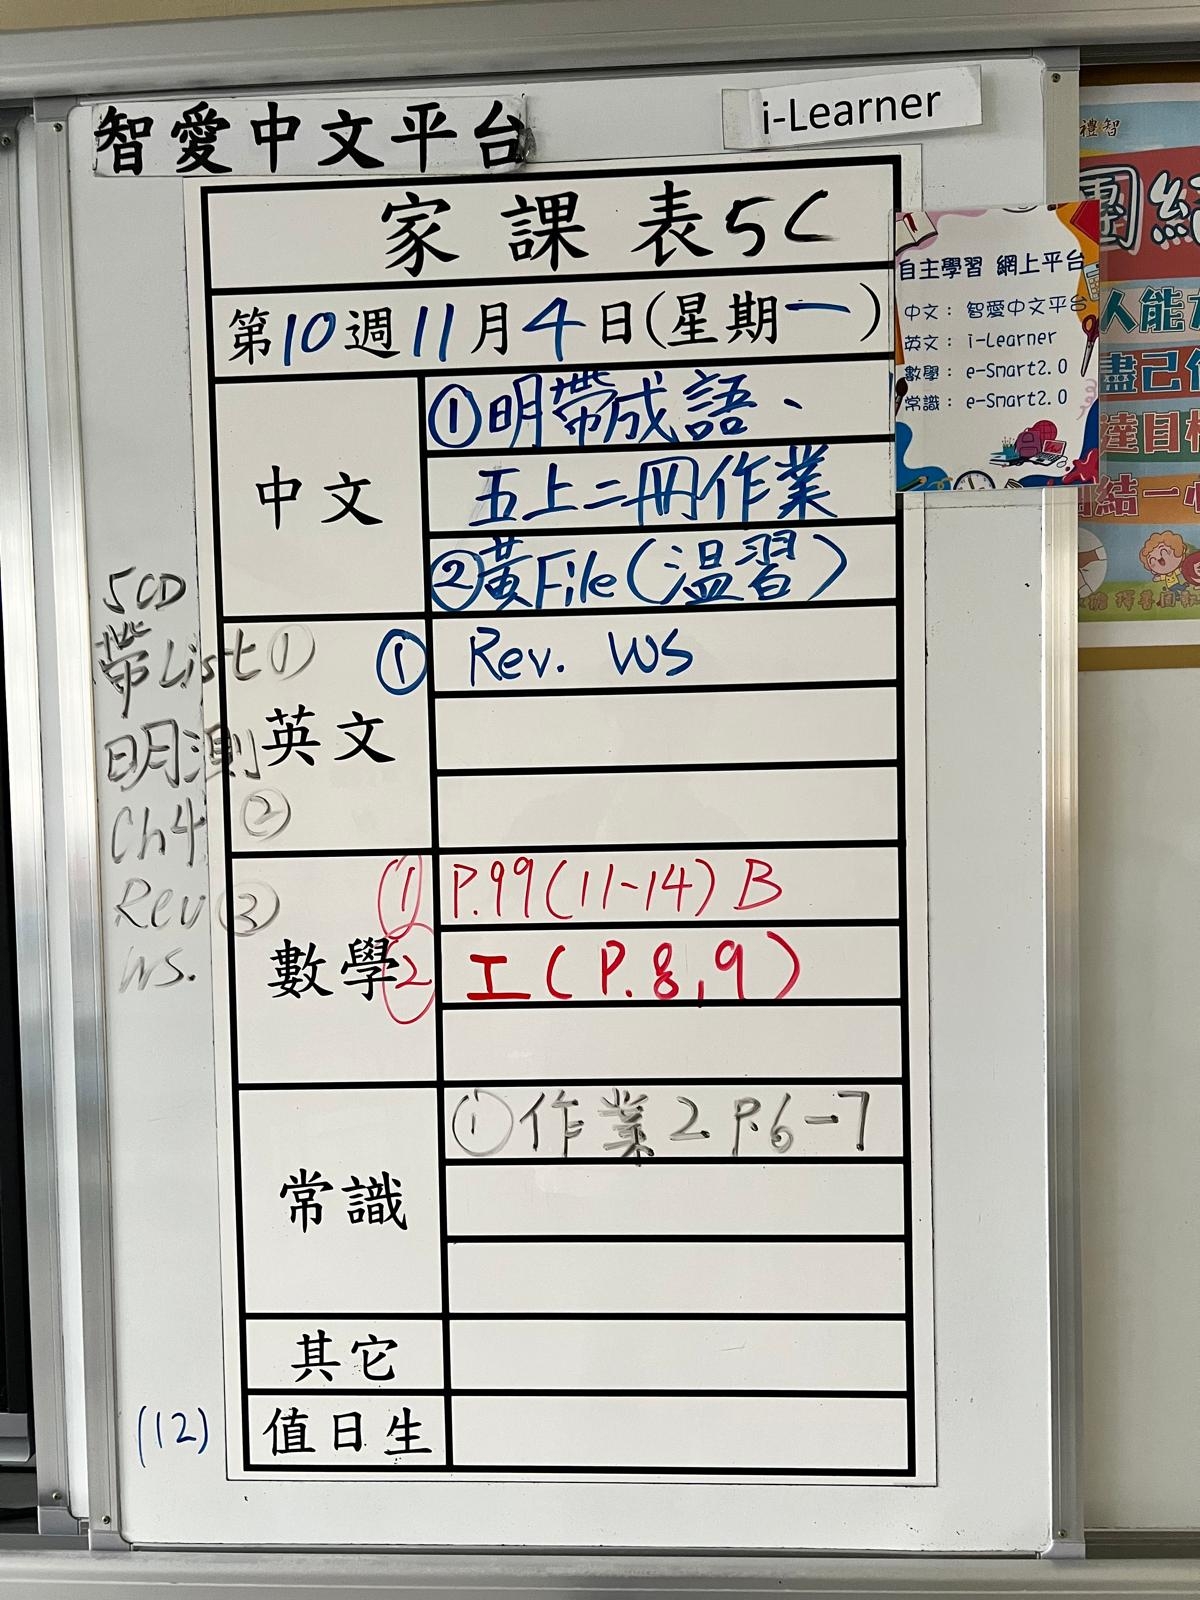 智愛中文平台
i-Learner
家課表5C
第10週11月4日(星期一)
中文
①明帶成語、
五上二冊作業
②黃File(溫習)
英文
① Rev. WS
數學
① P.99(11-14) B
② 工(P.8,9)
常識
①作業2 P.6-7
其它
值日生
5CD
帶List①
明測
Ch4 ②
Rev ③
WS.
(12)
自主學習 網上平台
中文： 智愛中文平台
英文： i-Learner
數學： e-Smart2.0
常識： e-Smart2.0
禮智
團結
人能
盡己
達目
結一心